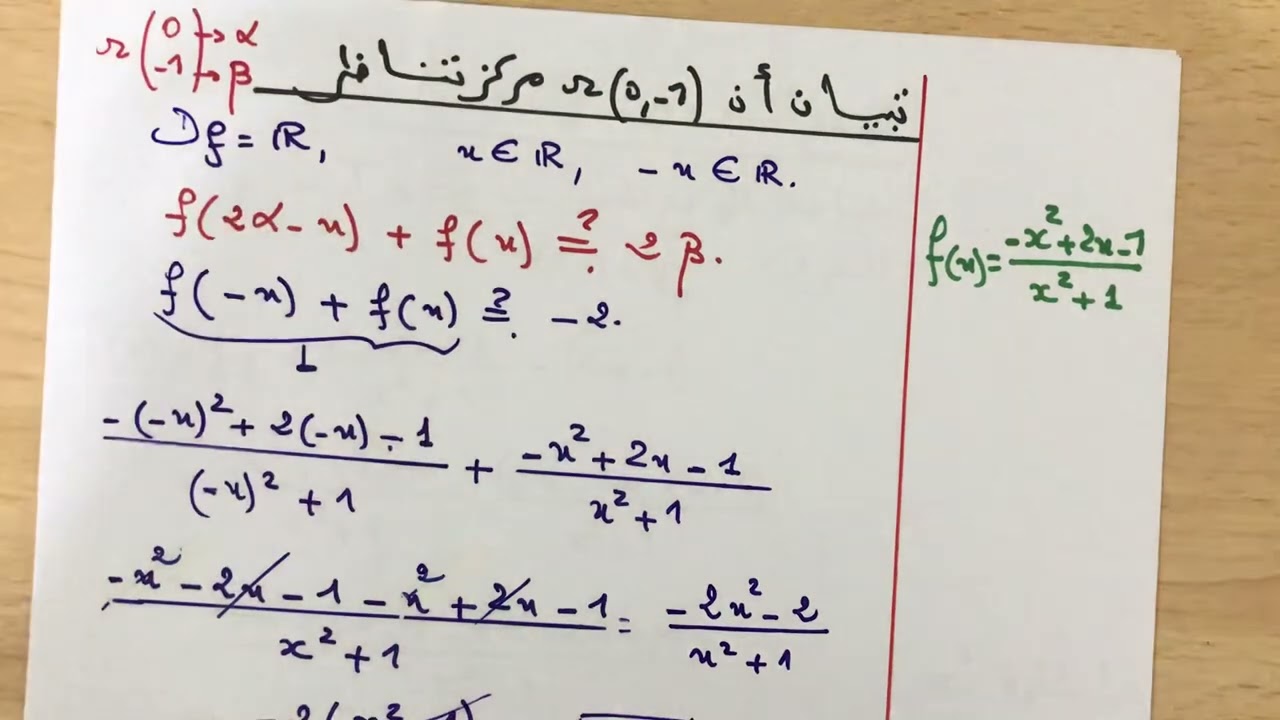 Ω(0 → α
-1 → β)
تبيان أن Ω(0,-1) مركز تناظر
Df = ℝ, x ∈ ℝ, -x ∈ ℝ.
f(2α-x) + f(x) ≟ 2β.
f(-x) + f(x) ≟ -2.
f(x) = (-x²+2x-1)/(x²+1)
(-(-x)²+2(-x)-1)/((-x)²+1) + (-x²+2x-1)/(x²+1)
(-x²-2x-1-x²+2x-1)/(x²+1) = (-2x²-2)/(x²+1)